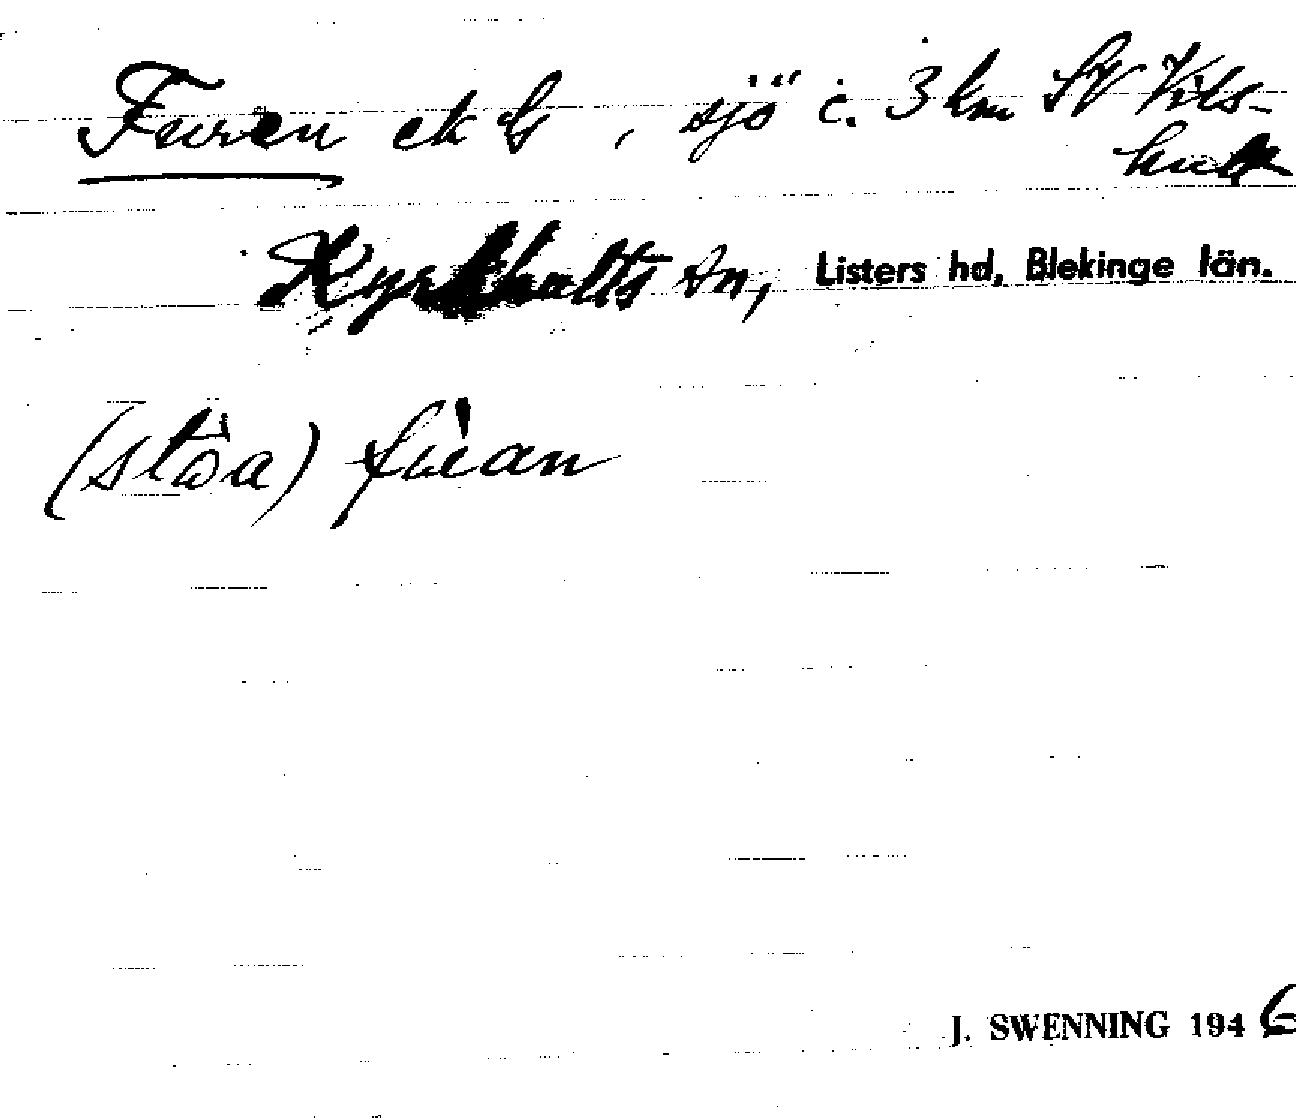 Furen ek G, sjö c. 3 km SV Vils-
hult
Kyrkhults sn, Listers hd, Blekinge län.
(stöa)
J. SWENNING 1946